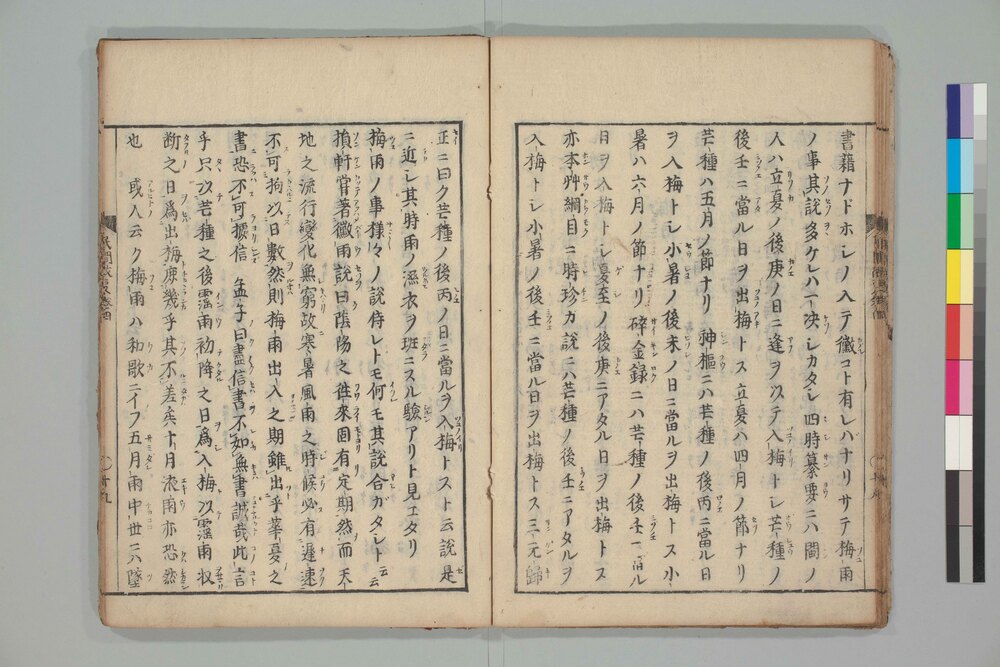 書籍ナドホシノ入テ黴コト有レバナリサテ梅雨
ノ事其説多ケレハ一决シカタシ四時纂要ニハ閩ノ
人ハ立夏ノ後庚ノ日ニ逢ヲ以テ入梅トシ芒種ノ
後壬ニ當ル日ヲ出梅トス立夏ハ四月ノ節ナリ
芒種ハ五月ノ節ナリ神樞ニハ芒種ノ後丙ニ當ル日
ヲ入梅トシ小暑ノ後未ノ日ニ當ルヲ出梅トス小
暑ハ六月ノ節ナリ碎金録ニハ芒種ノ後壬ニ當ル
日ヲ入梅トシ夏至ノ後庚ニアタル日ヲ出梅トス
亦本艸綱目ニ時珍カ説ニハ芒種ノ後壬ニアタルヲ
入梅トシ小暑ノ後壬ニ當ル日ヲ出梅トス三元歸
正ニ曰ク芒種ノ後丙ノ日ニ當ルヲ入梅トスト云説是
ニ近シ其時雨ノ漏衣ヲ班ニスル驗アリト見エタリ
梅雨ノ事様々ノ説侍レトモ何モ其説合ガタシ云云
損軒嘗著黴雨説曰陰陽之往來固有定期然而天
地之流行變化無窮故寒暑風雨之時候必有遲速
不可拘以日數然則梅雨出入之期雖出乎華夏之
書恐不可據信 孟子曰盡信書不如無書誠哉此言
乎只以芒種之後霪雨初降之日爲入梅以霪雨収
断之日爲出梅庶幾乎其不差矣十月液雨亦恐然
也 或人云ク梅雨ハ和歌ニイフ五月雨中世ニハ墜